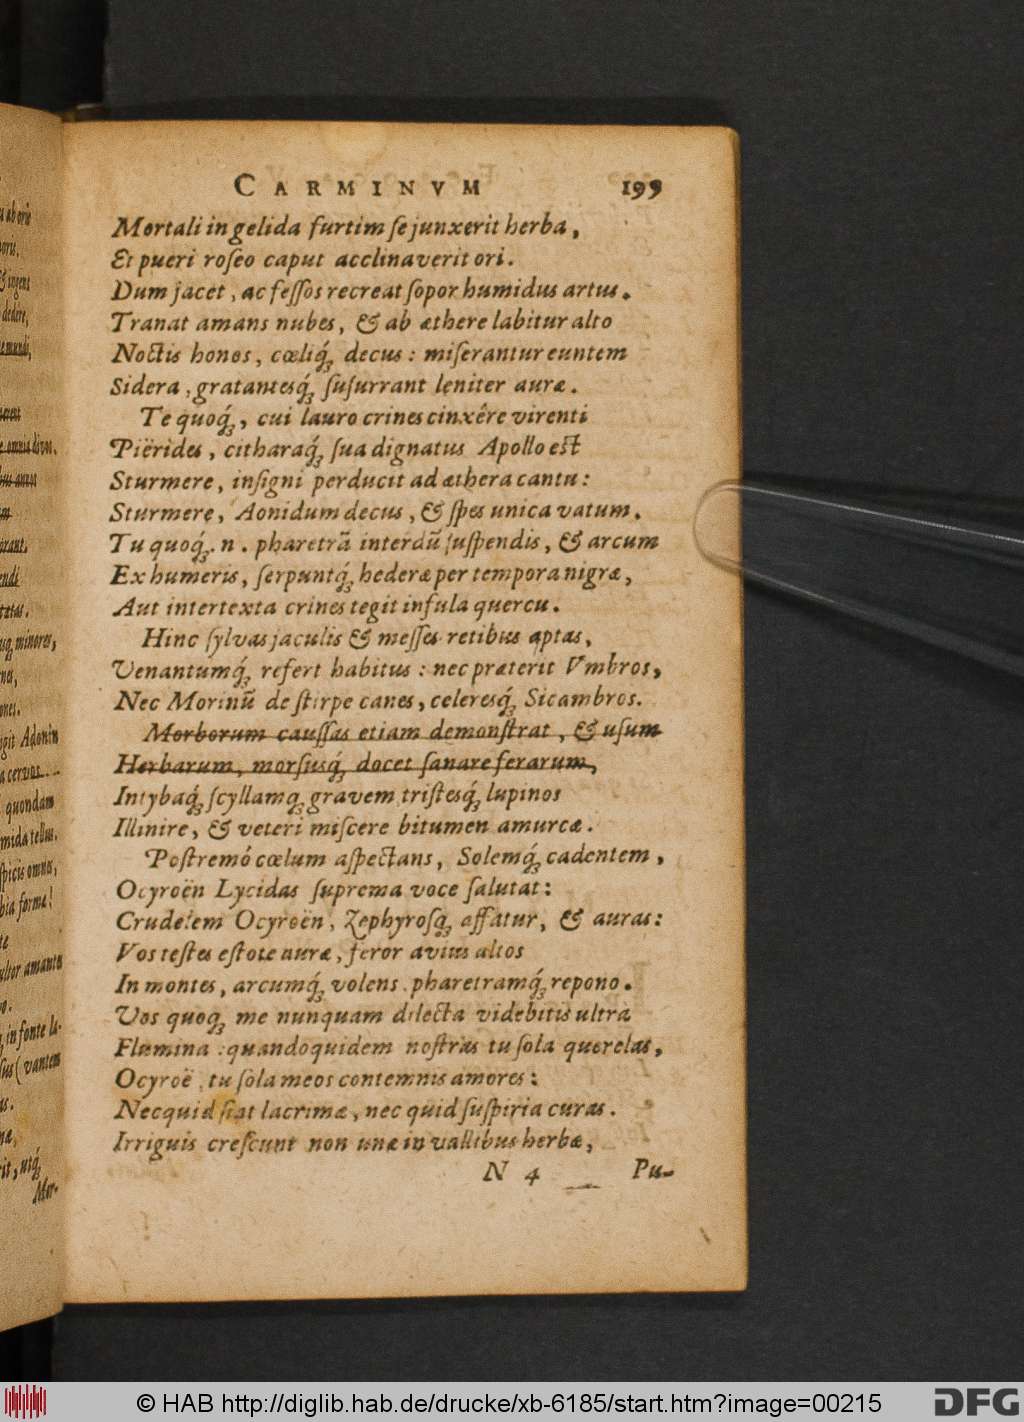 CARMINVM 199
Mortali in gelida furtim ſe junxerit herba,
Et pueri roſeo caput acclinaverit ori.
Dum jacet, ac feſſos recreat ſopor humidus artus.
Tranat amans nubes, & ab æthere labitur alto
Noctis honos, cœliq́ꝫ decus: miſerantur euntem
Sidera, gratantesq́ꝫ ſuſurrant leniter auræ.
Te quoq́ꝫ, cui lauro crines cinxêre virenti
Piërides, citharaq́ꝫ ſua dignatus Apollo est
Sturmere, inſigni perducit ad æthera cantu:
Sturmere, Aonidum decus, & ſpes unica vatum.
Tu quoq́ꝫ. n. pharetrã interdũ ſuſpendis, & arcum
Ex humeris, ſerpuntq́ꝫ hederæ per tempora nigræ,
Aut intertexta crines tegit infula quercu.
Hinc ſylvas jaculis & meſſes retibus aptas,
Venantumq́ꝫ refert habitus: nec præterit Vmbros,
Nec Morinũ de ſtirpe canes, celeresq́ꝫ Sicambros.
Morborum cauſſas etiam demonſtrat, & uſum
Herbarum, morſusq́ꝫ docet ſanare ferarum,
Intybaq́ꝫ ſcyllamqꝫ gravem triſtesq́ꝫ lupinos
Illinire, & veteri miſcere bitumen amurcæ.
Poſtremó cœlum aſpectans, Solemq́ꝫ cadentem,
Ocyroën Lycidas ſuprema voce ſalutat:
Crudelem Ocyroën, Zephyroſqꝫ affatur, & auras:
Vos teſtes eſtote auræ, feror avius altos
In montes, arcumq́ꝫ volens pharetramq́ꝫ repono.
Vos quoqꝫ me nunquam dilecta videbitis ultrà
Flumina: quandoquidem noſtras tu ſola querelas,
Ocyroë, tu ſola meos contemnis amores:
Nec quid ſint lacrimæ, nec quid ſuſpiria curas.
Irriguis creſcunt non unæ in vallibus herbæ,
N 4 Pu-
© HAB http://diglib.hab.de/drucke/xb-6185/start.htm?image=00215
DFG